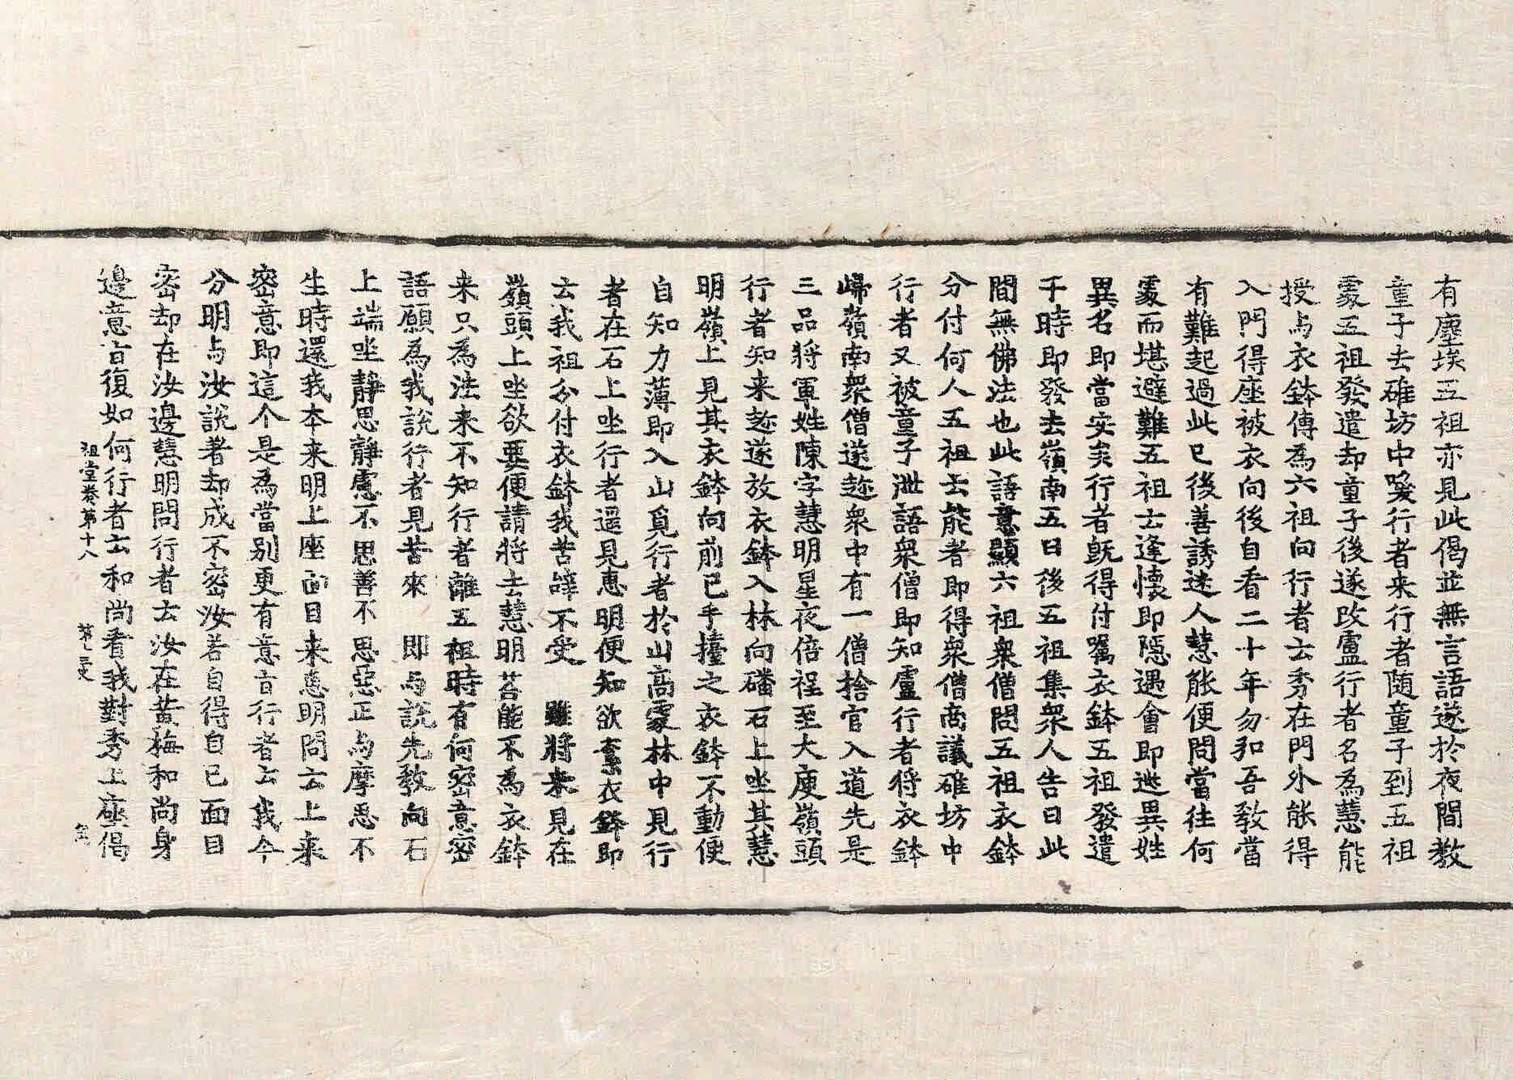 有塵埃五祖亦見此偈並無言語遂於夜間教
童子去碓坊中喚行者来行者随童子到五祖
處五祖發遣却童子後遂改盧行者名為慧能
授与衣鉢傳為六祖向行者云秀在門外能得
入門得座被衣向後自看二十年勿弘吾教當
有難起過此已後善誘迷人慧能便問當往何
處而堪避難五祖云逢懷即隠遇會即逃異姓
異名即當安矣行者既得付嘱衣鉢五祖發遣
于時即發去嶺南五日後五祖集衆人告曰此
間無佛法也此語意顯六祖衆僧問五祖衣鉢
分付何人五祖云能者即得衆僧商議碓坊中
行者又被童子泄語衆僧即知盧行者将衣鉢
歸嶺南衆僧遂趂衆中有一僧捨官入道先是
三品将軍姓陳字慧明星夜倍程至大庾嶺頭
行者知来趂遂放衣鉢入林向磻石上坐其慧
明嶺上見其衣鉢向前已手擡之衣鉢不動便
自知力薄即入山覓行者於山高處林中見行
者在石上坐行者遥見惠明便知欲奪衣鉢即
云我祖分付衣鉢我苦辝不受 雖将来見在
嶺頭上坐欲要便請将去慧明荅能不為衣鉢
来只為法来不知行者離五祖時有何密意密
語願為我說行者見苦來 即与說先教向石
上端坐靜思靜慮不思善不思惡正与摩思不
生時還我本来明上座面目来惠明問云上来
密意即這个是為當別更有意旨行者云我今
分明与汝說著却成不密汝若自得自己面目
密却在汝邊慧明問行者云汝在黄梅和尚身
邊意旨復如何行者云和尚看我對秀上座偈
祖堂卷第十八